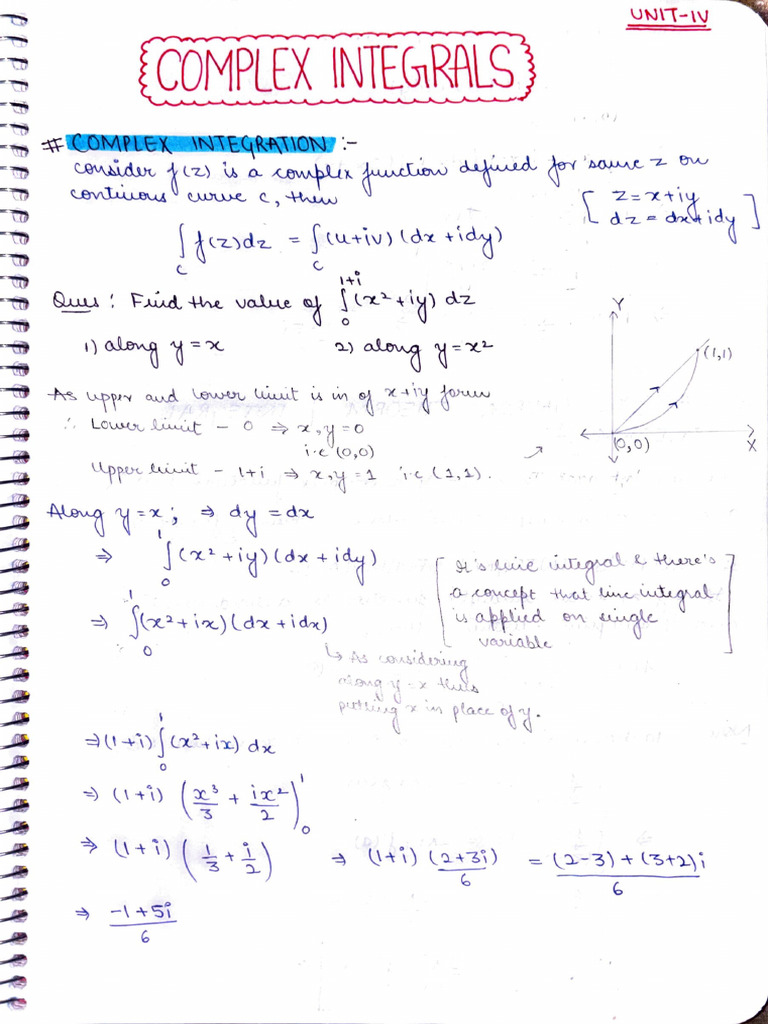 UNIT-IV
COMPLEX INTEGRALS
# COMPLEX INTEGRATION :-
consider f(z) is a complex function defined for same z on
continous curve c, then
[ z = x+iy
dz = dx+idy ]
∫_C f(z)dz = ∫_C (u+iv) (dx+idy)
Ques : Find the value of ∫_0^{1+i} (x²+iy) dz
1) along y=x 2) along y=x²
Y
(1,1)
(0,0)
X
As upper and lower limit is in of x+iy form
∴ Lower limit - 0 ⇒ x,y=0
i.e (0,0)
Upper limit - 1+i ⇒ x,y=1 i.e (1,1).
Along y=x; ⇒ dy=dx
⇒ ∫_0^1 (x²+iy)(dx+idy)
[ It's line integral & there's
a concept that line integral
is applied on single
variable ]
⇒ ∫_0^1 (x²+ix)(dx+idx)
↳ As considering
along y=x thus
putting x in place of y.
⇒ (1+i) ∫_0^1 (x²+ix) dx
⇒ (1+i) (x³/3 + ix²/2)_0^1
⇒ (1+i) (1/3 + i/2) ⇒ (1+i) (2+3i)/6 = (2-3)+(3+2)i/6
⇒ -1+5i/6